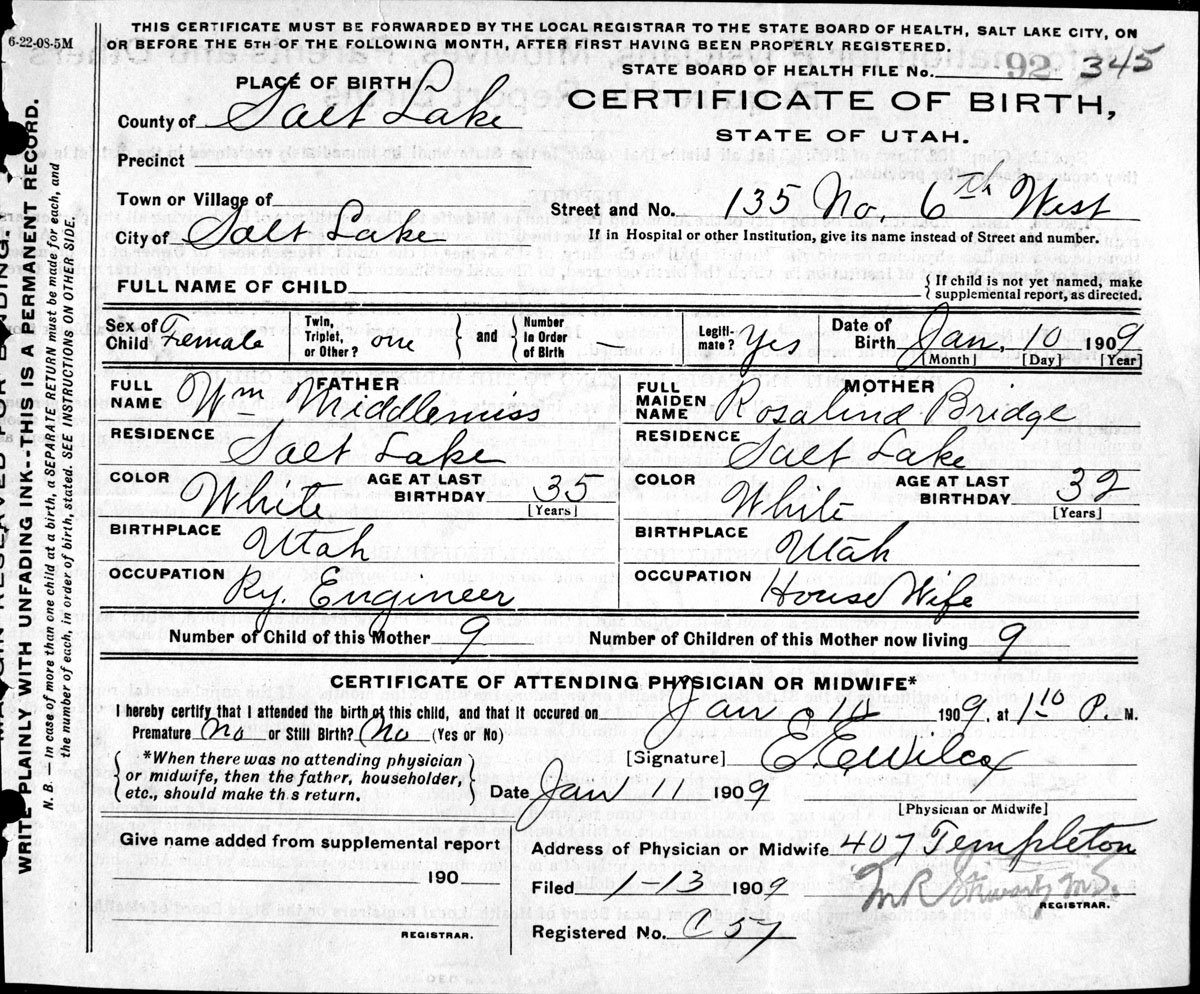 THIS CERTIFICATE MUST BE FORWARDED BY THE LOCAL REGISTRAR TO THE STATE BOARD OF HEALTH, SALT LAKE CITY, ON
6-22-08-5M OR BEFORE THE 5TH OF THE FOLLOWING MONTH, AFTER FIRST HAVING BEEN PROPERLY REGISTERED.
STATE BOARD OF HEALTH FILE No. 92 345
PLACE OF BIRTH
CERTIFICATE OF BIRTH,
County of Salt Lake
STATE OF UTAH.
Precinct
Town or Village of
Street and No. 135 No. 6th West
City of Salt Lake
If in Hospital or other Institution, give its name instead of Street and number.
FULL NAME OF CHILD
{ If child is not yet named, make
supplemental report, as directed.
Sex of Child Female
Twin, Triplet, or Other? one } and { Number In Order of Birth —
Legiti- mate? Yes
Date of Birth Jan. 10 1909
[Month] [Day] [Year]
FATHER
FULL NAME Wm Middlemiss
RESIDENCE Salt Lake
COLOR White AGE AT LAST BIRTHDAY 35
[Years]
BIRTHPLACE Utah
OCCUPATION Ry. Engineer
MOTHER
FULL MAIDEN NAME Rosalind Bridge
RESIDENCE Salt Lake
COLOR White AGE AT LAST BIRTHDAY 32
[Years]
BIRTHPLACE Utah
OCCUPATION House Wife
Number of Child of this Mother 9 Number of Children of this Mother now living 9
CERTIFICATE OF ATTENDING PHYSICIAN OR MIDWIFE*
I hereby certify that I attended the birth of this child, and that it occured on Jan 10 1909, at 1 10 P. M.
Premature No or Still Birth? No (Yes or No)
{ *When there was no attending physician
or midwife, then the father, householder,
etc., should make this return. }
[Signature] E E Wilcox
Date Jan 11 1909
[Physician or Midwife]
Give name added from supplemental report
190
REGISTRAR.
Address of Physician or Midwife 407 Templeton
Filed 1-13 1909
M. R. Stewart M.D.
REGISTRAR.
Registered No. C 57
WRITE PLAINLY WITH UNFADING INK--THIS IS A PERMANENT RECORD.
N. B.— In case of more than one child at a birth, a SEPARATE RETURN must be made for each, and
the number of each, in order of birth, stated. SEE INSTRUCTIONS ON OTHER SIDE.